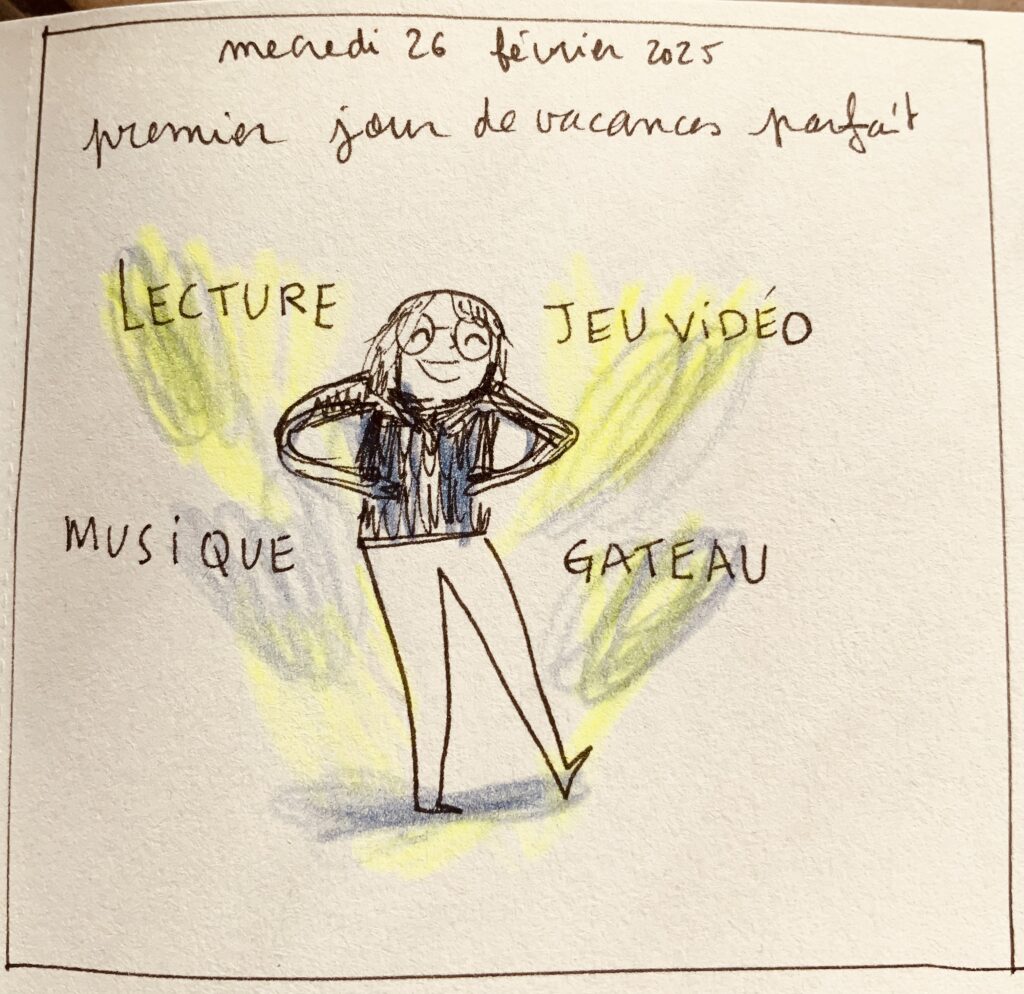 mecredi 26 février 2025
premier jour de vacances parfait
LECTURE
JEU VIDÉO
MUSIQUE
GATEAU